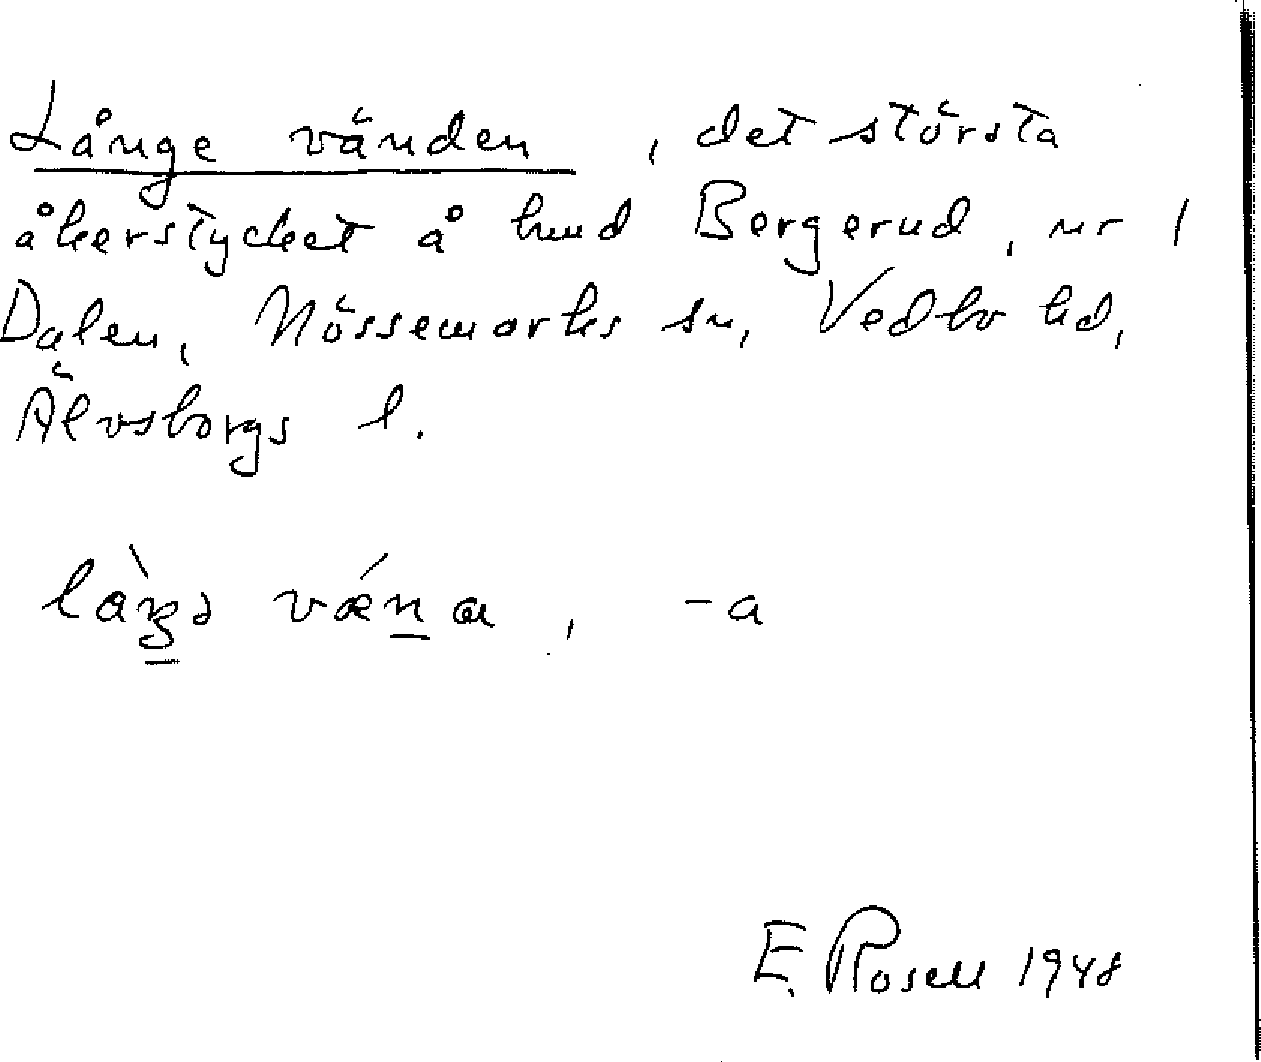 Långe vänden, det största
åkerstycket å hmd Bergerud, nr 1
Dalen, Nössemarks sn, Vedbo hd,
Älvsborgs l.
, -a
E. Rosell 1948